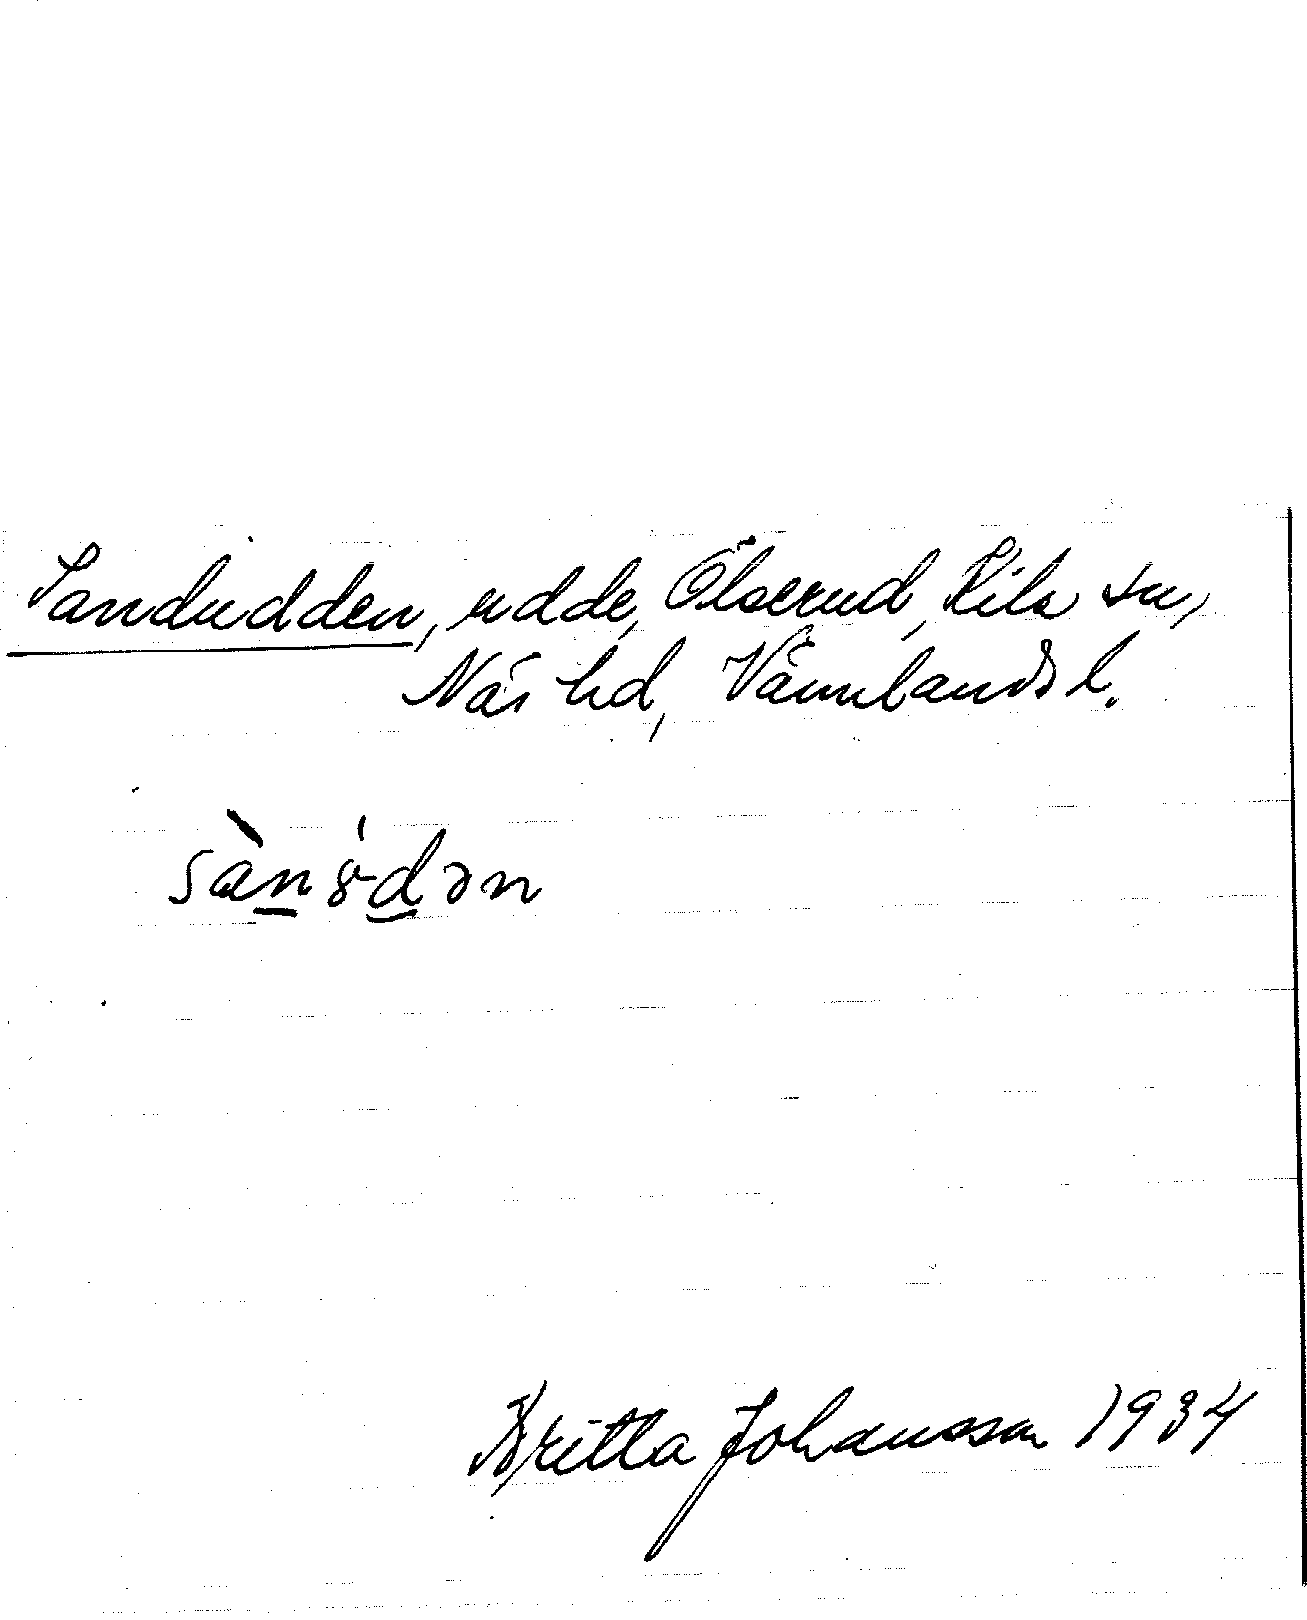 Sandudden, udde, Ölserud, Kila sn,
Näs hd, Värmlands l.
sànȣ́dən
Britta Johansson 1934